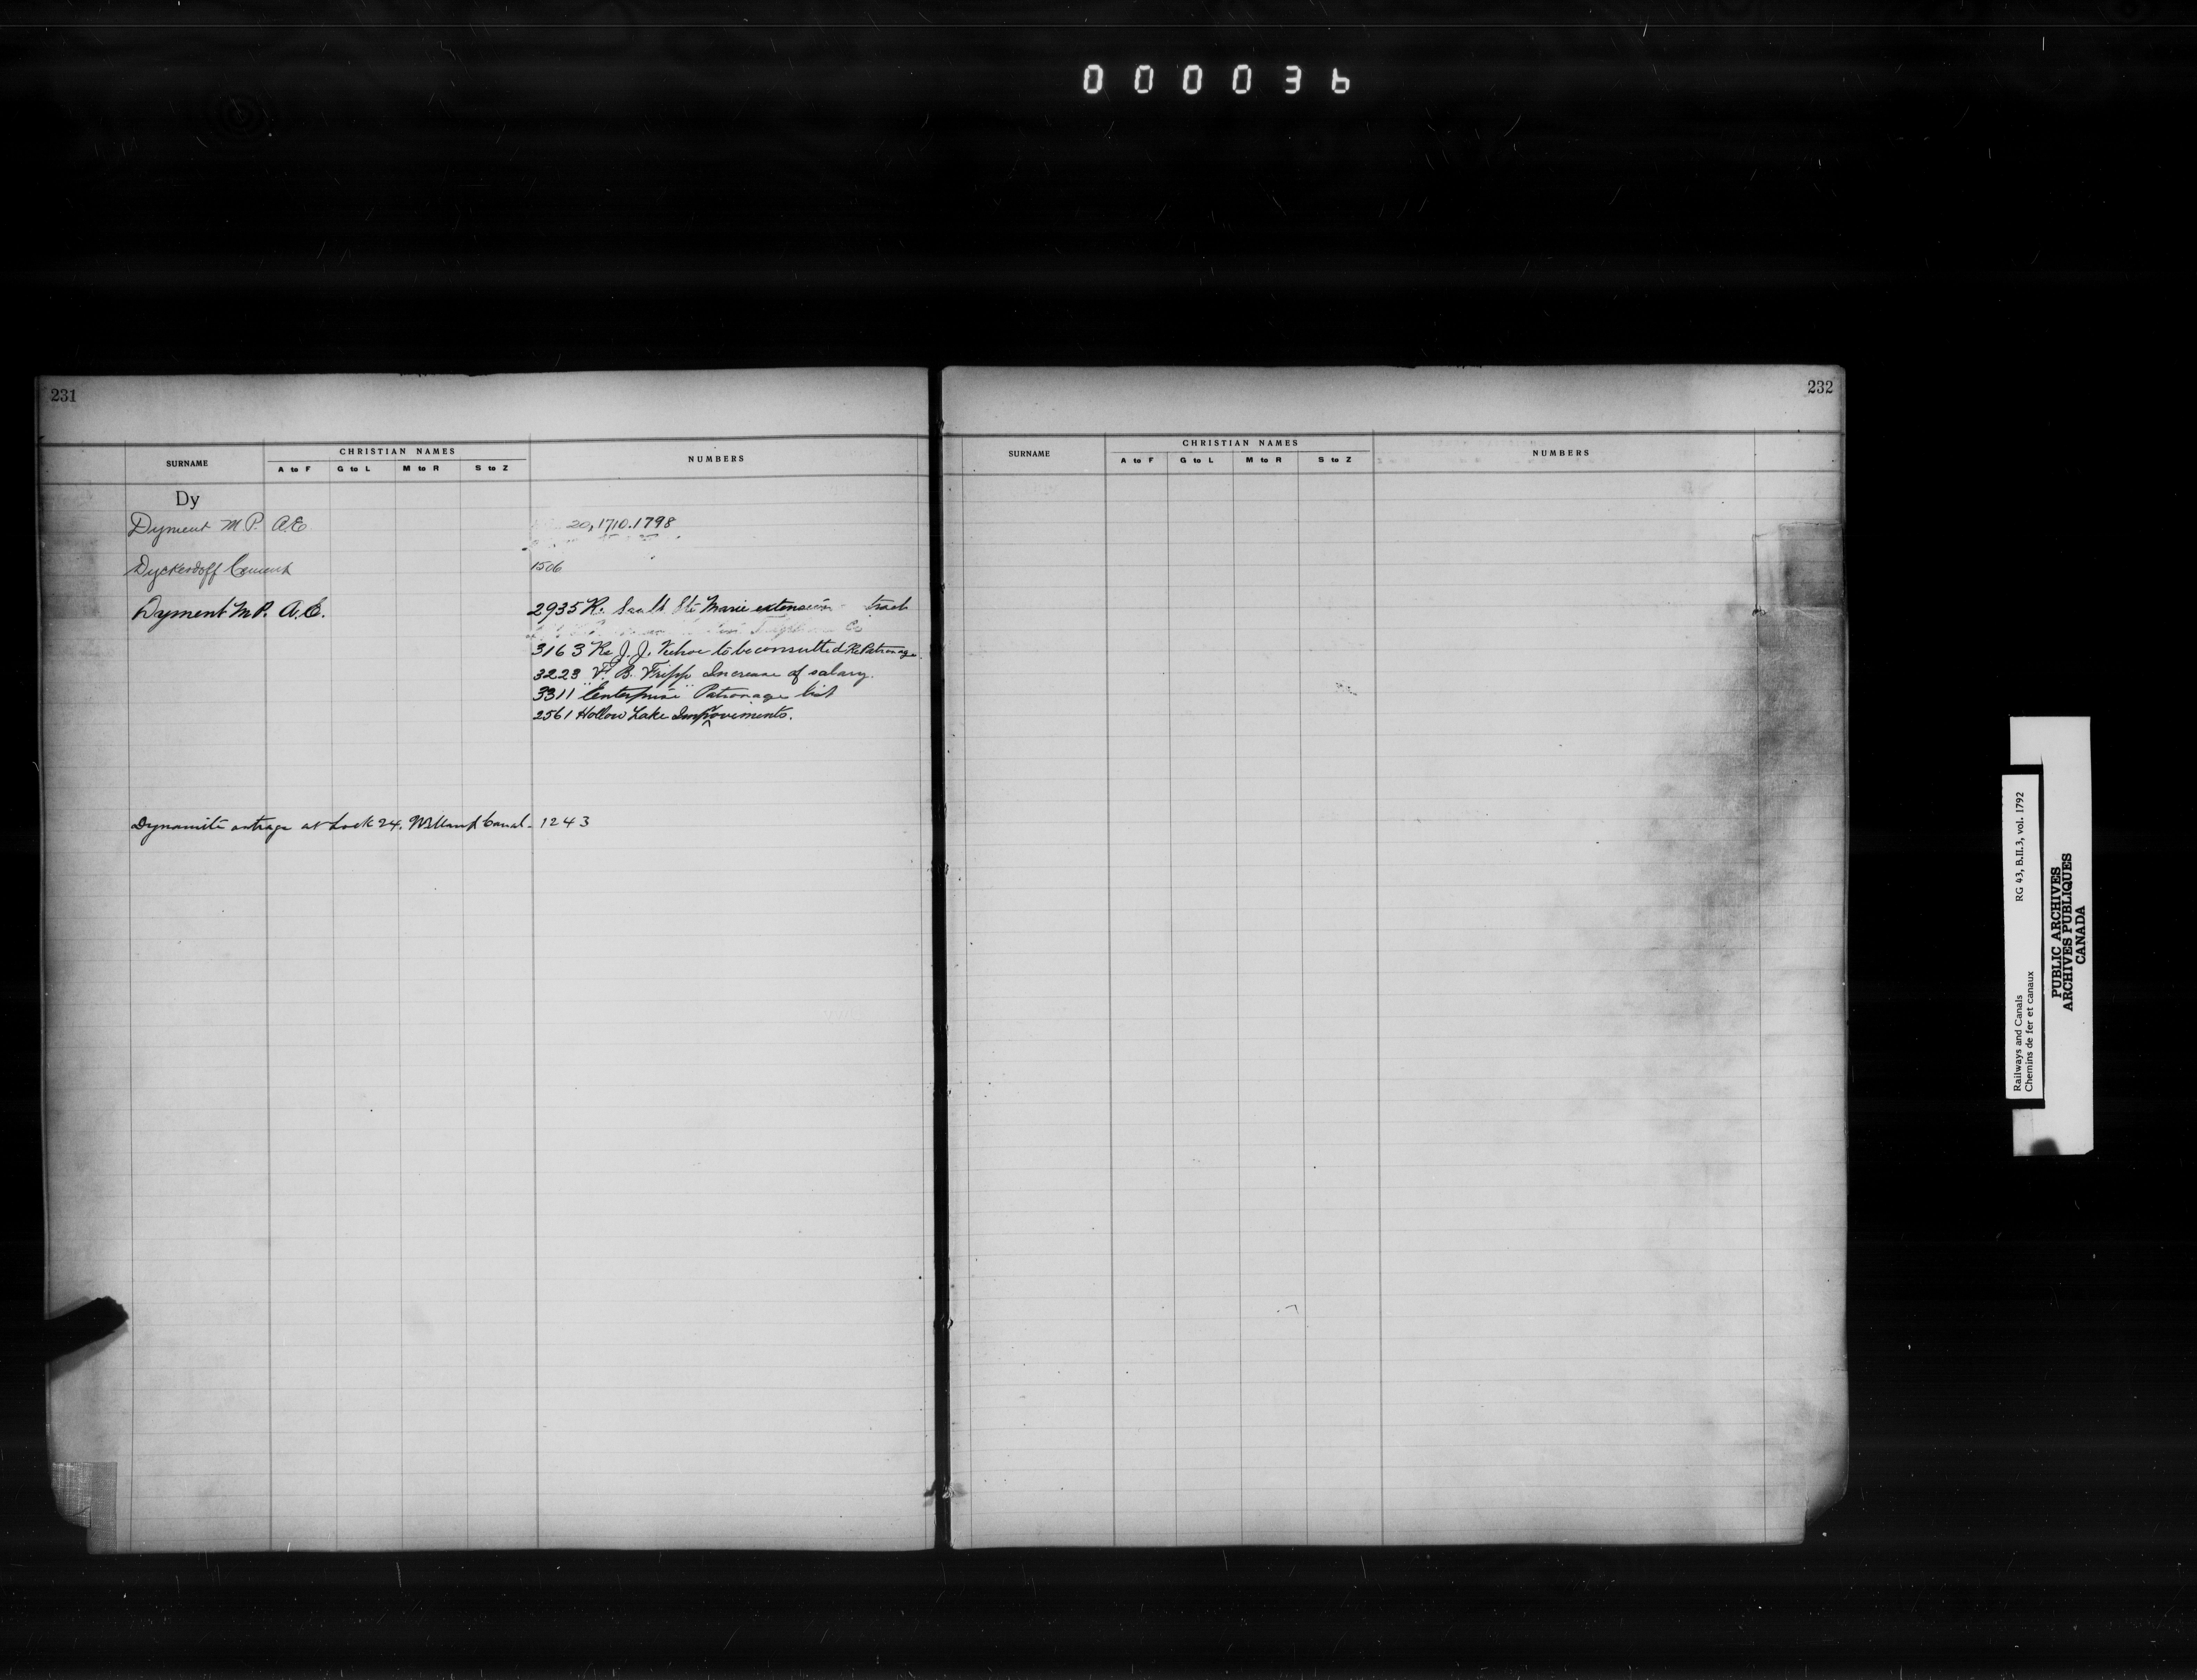 000036
231
SURNAME
CHRISTIAN NAMES
A to F G to L M to R S to Z
NUMBERS
Dy
Dyment M.P. A.E 20, 1710. 1798
Dyckerdoff Cement 1506
Dyment M.P. A.E. 2935 Re Sault Ste Marie extension
Co
3163 Re J. J. Kehoe to be consulted Re Patronage
3223 " F. B. Fripp Increase of salary.
3311 "Enterprise" Patronage list
2561 Hollow Lake Improvements.
Dynamite outrage at Lock 24. Welland Canal. 1243
232
SURNAME
CHRISTIAN NAMES
A to F G to L M to R S to Z
NUMBERS
Railways and Canals RG 43, B.II.3, vol. 1792
Chemins de fer et canaux
PUBLIC ARCHIVES
ARCHIVES PUBLIQUES
CANADA